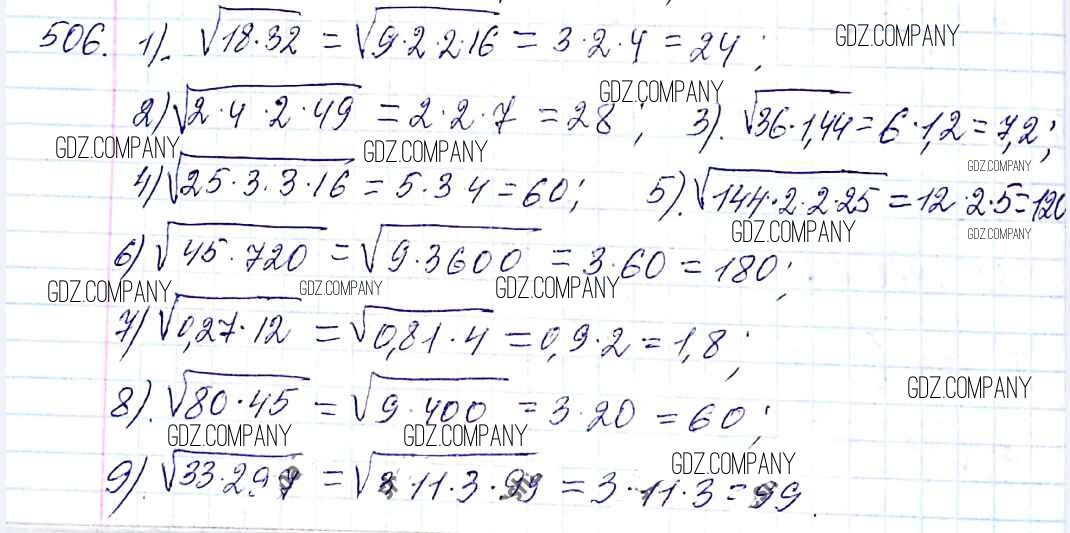 506. 1). √18·32 = √9·2·2·16 = 3·2·4 = 24; GDZ.COMPANY
GDZ.COMPANY
2) √2·4·2·49 = 2·2·7 = 28; 3). √36·1,44 = 6·1,2 = 7,2;
GDZ.COMPANY GDZ.COMPANY GDZ.COMPANY
4) √25·3·3·16 = 5·3 4 = 60; 5). √144·2·2·25 = 12·2·5 = 120
GDZ.COMPANY GDZ.COMPANY
6) √45·720 = √9·3600 = 3·60 = 180;
GDZ.COMPANY GDZ.COMPANY GDZ.COMPANY
7) √0,27·12 = √0,81·4 = 0,9·2 = 1,8;
GDZ.COMPANY
8). √80·45 = √9·400 = 3·20 = 60;
GDZ.COMPANY GDZ.COMPANY
GDZ.COMPANY
9). √33·297 = √ 11·3· = 3·11·3 = 99